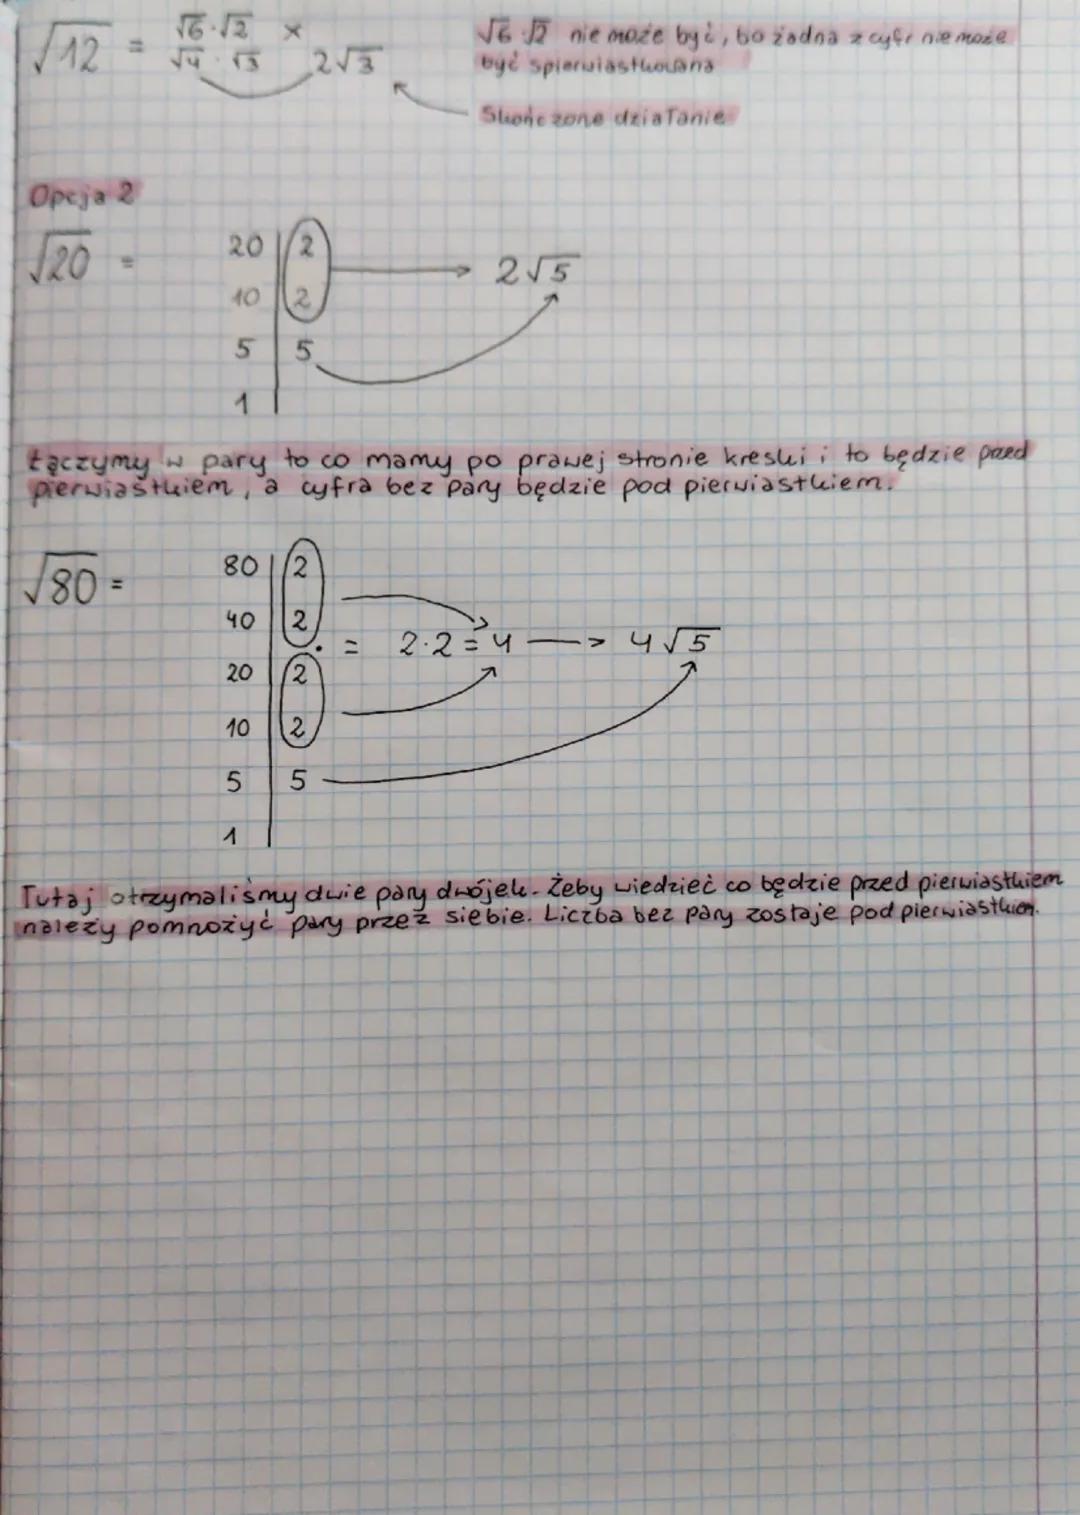 √12 = √6·√2 ×
√4·√3 2√3
√6·√2 nie może być, bo żadna z cyfr nie może
być spierwiastkowana
Skończone działanie
Opcja 2
√20 =
20 | 2
10 | 2
5 | 5
1 |
→ 2√5
Łączymy w pary to co mamy po prawej stronie kreski i to będzie przed
pierwiastkiem, a cyfra bez pary będzie pod pierwiastkiem.
√80 =
80 | 2
40 | 2
20 | 2
10 | 2
5 | 5
1 |
· = 2·2=4 → 4√5
Tutaj otrzymaliśmy dwie pary dwójek. Żeby wiedzieć co będzie przed pierwiastkiem
należy pomnożyć pary przez siebie. Liczba bez pary zostaje pod pierwiastkiem.